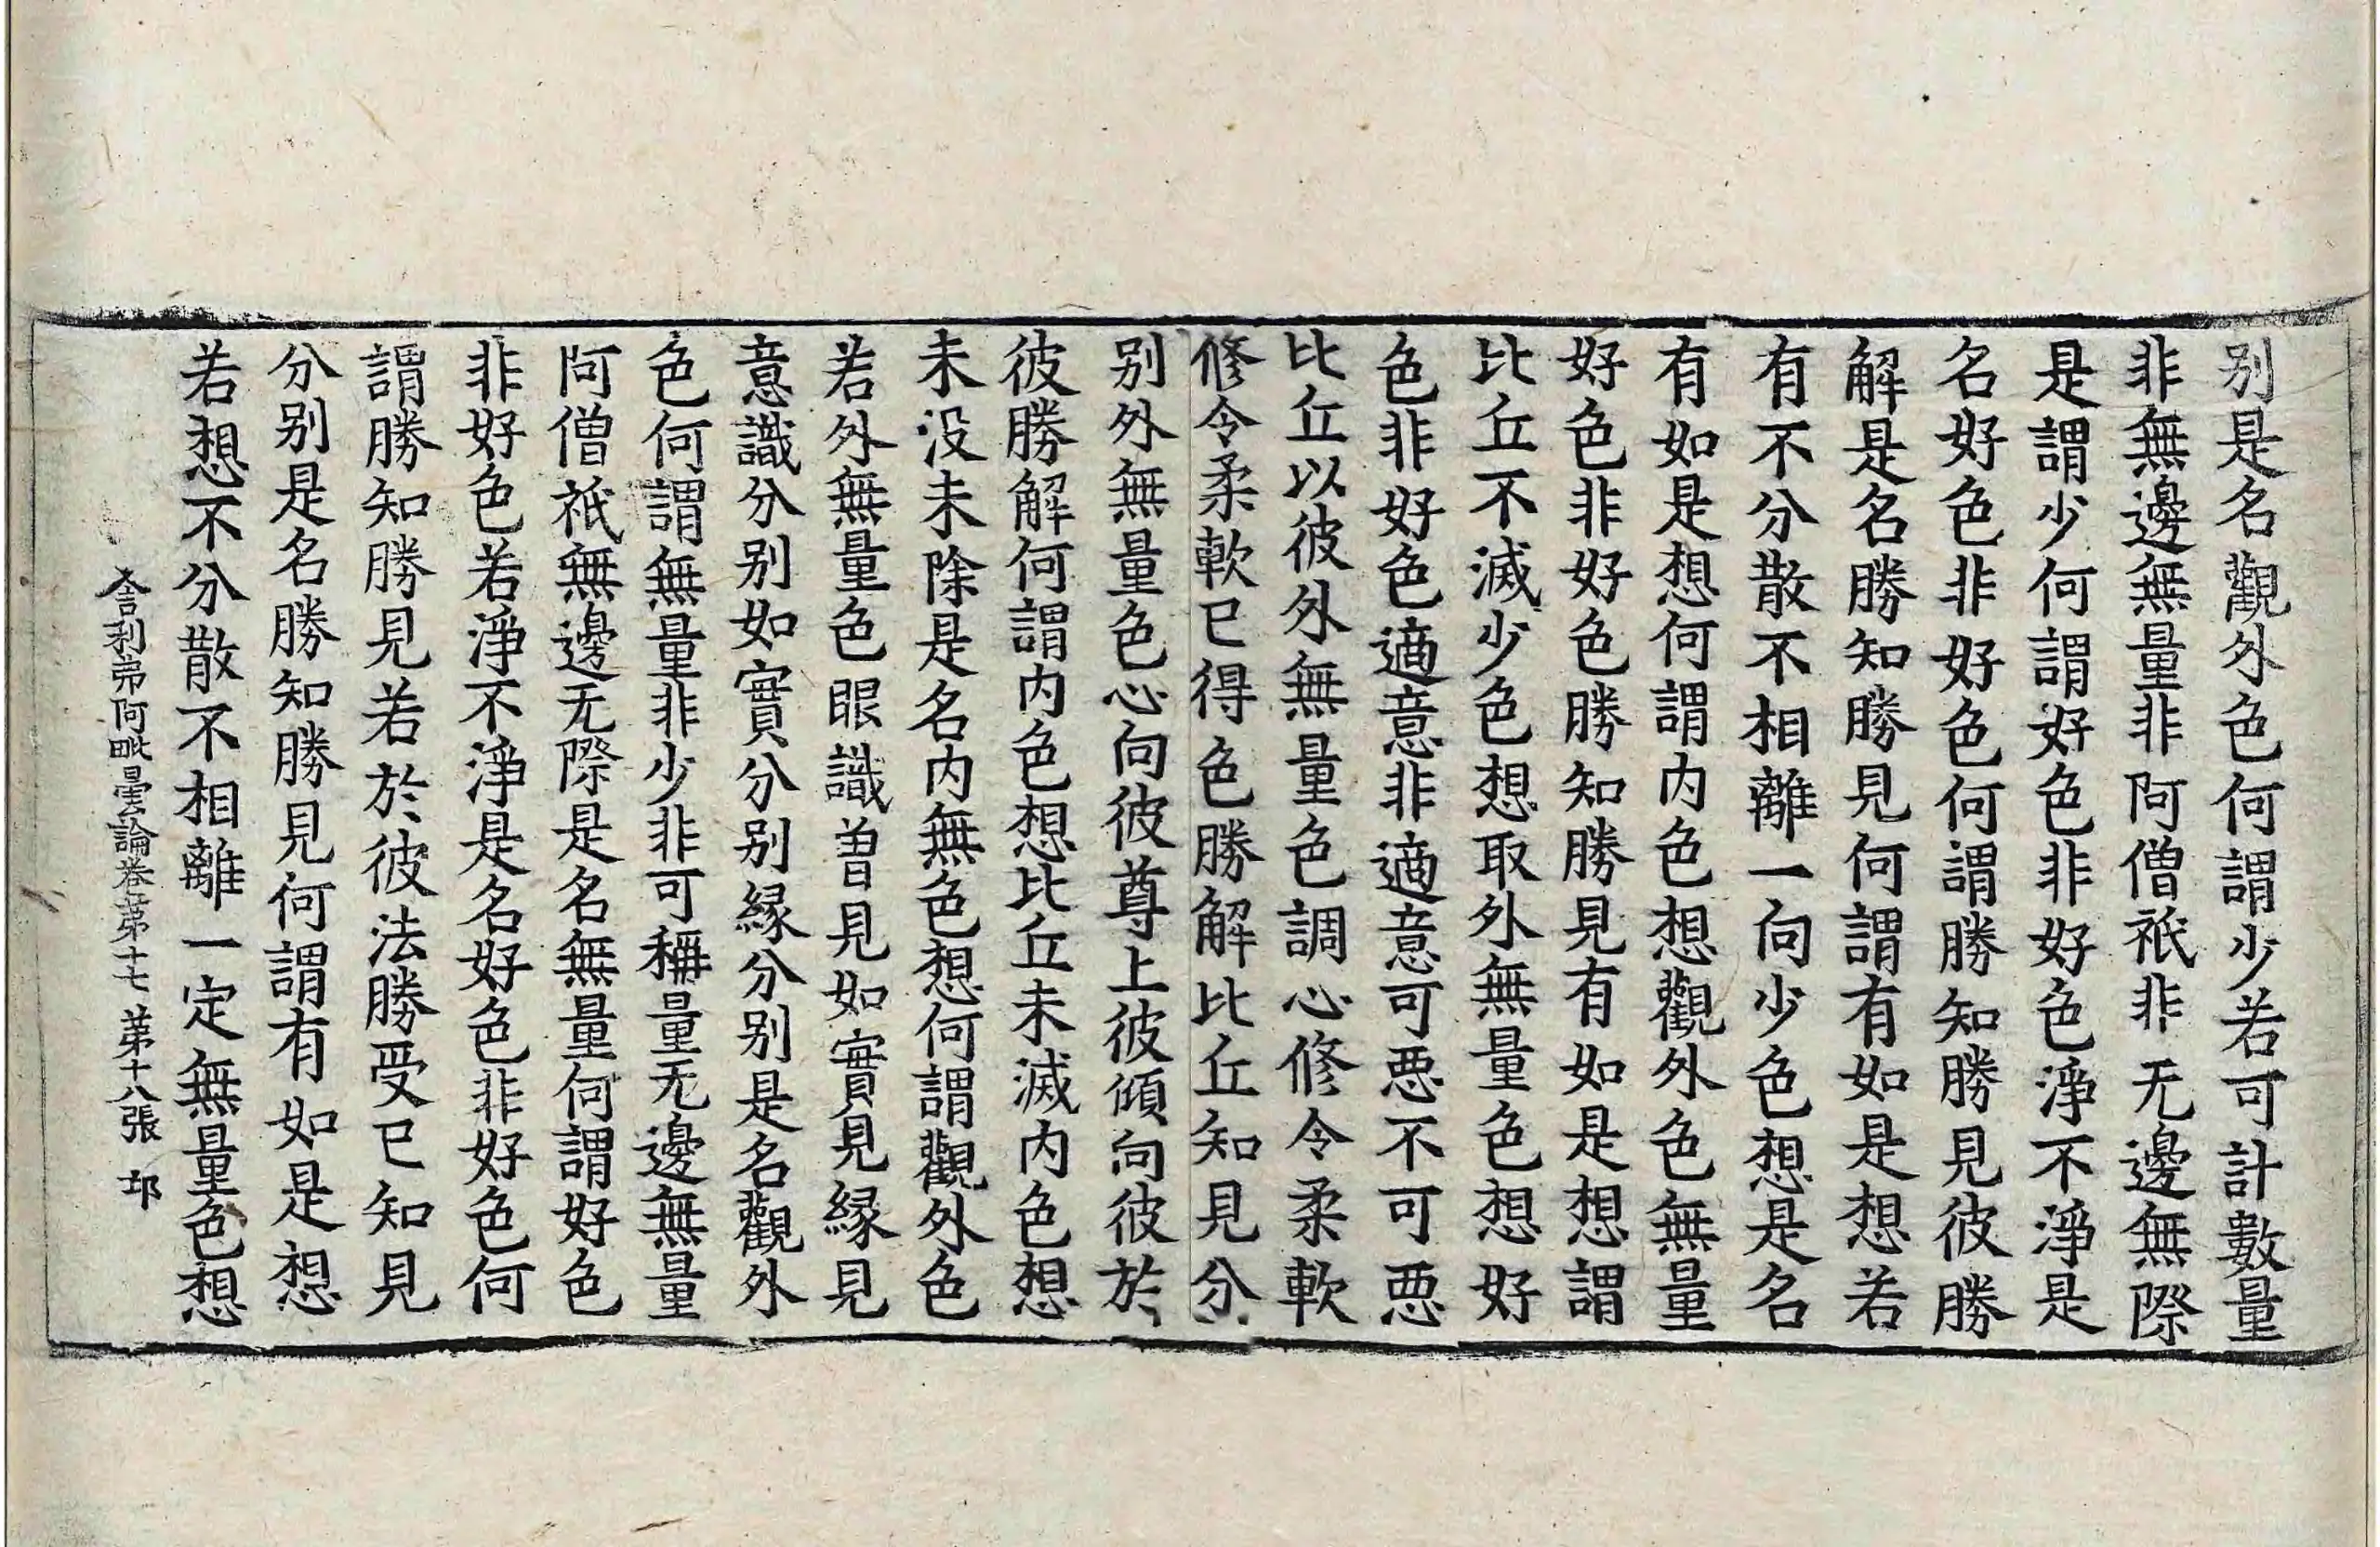 别是名觀外色何謂少若可計數量
非無邊無量非阿僧祇非无邊無際
是謂少何謂好色非好色淨不淨是
名好色非好色何謂勝知勝見彼勝
解是名勝知勝見何謂有如是想若
有不分散不相離一向少色想是名
有如是想何謂内色想觀外色無量
好色非好色勝知勝見有如是想謂
比丘不滅少色想取外無量色想好
色非好色適意非適意可悪不可悪
比丘以彼外無量色調心修令柔軟
修令柔軟已得色勝解比丘知見分
别外無量色心向彼尊上彼傾向彼於
彼勝解何謂内色想比丘未滅内色想
未没未除是名内無色想何謂觀外色
若外無量色眼識曽見如實見縁見
意識分别如實分别縁分别是名觀外
色何謂無量非少非可稱量无邊無量
阿僧祇無邊无際是名無量何謂好色
非好色若淨不淨是名好色非好色何
謂勝知勝見若於彼法勝受已知見
分别是名勝知勝見何謂有如是想
若想不分散不相離一定無量色想
舍利弗阿毗曇論卷第十七 第十八張 邙